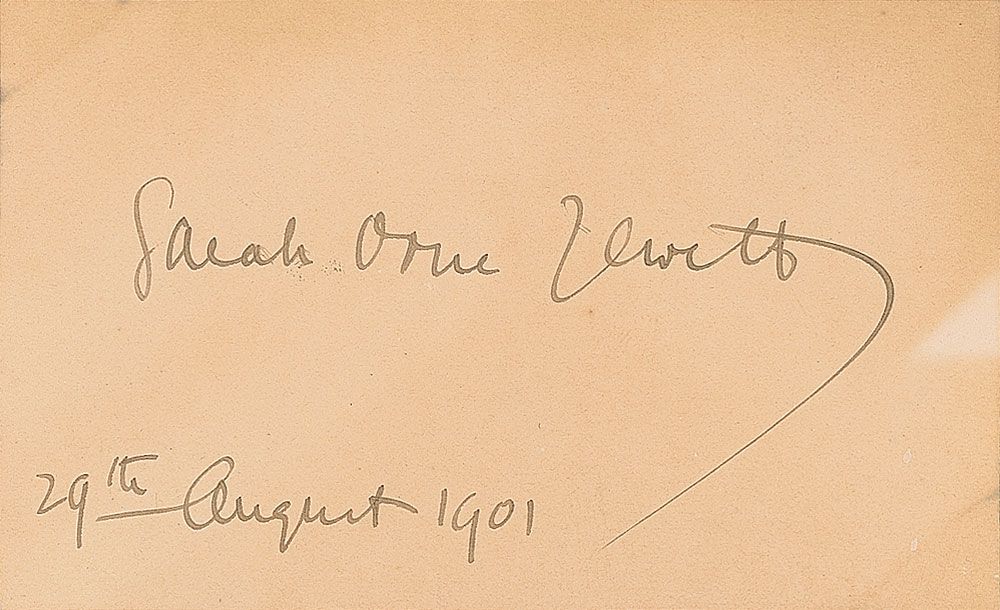 Sarah Orne Jewett
29th August 1901